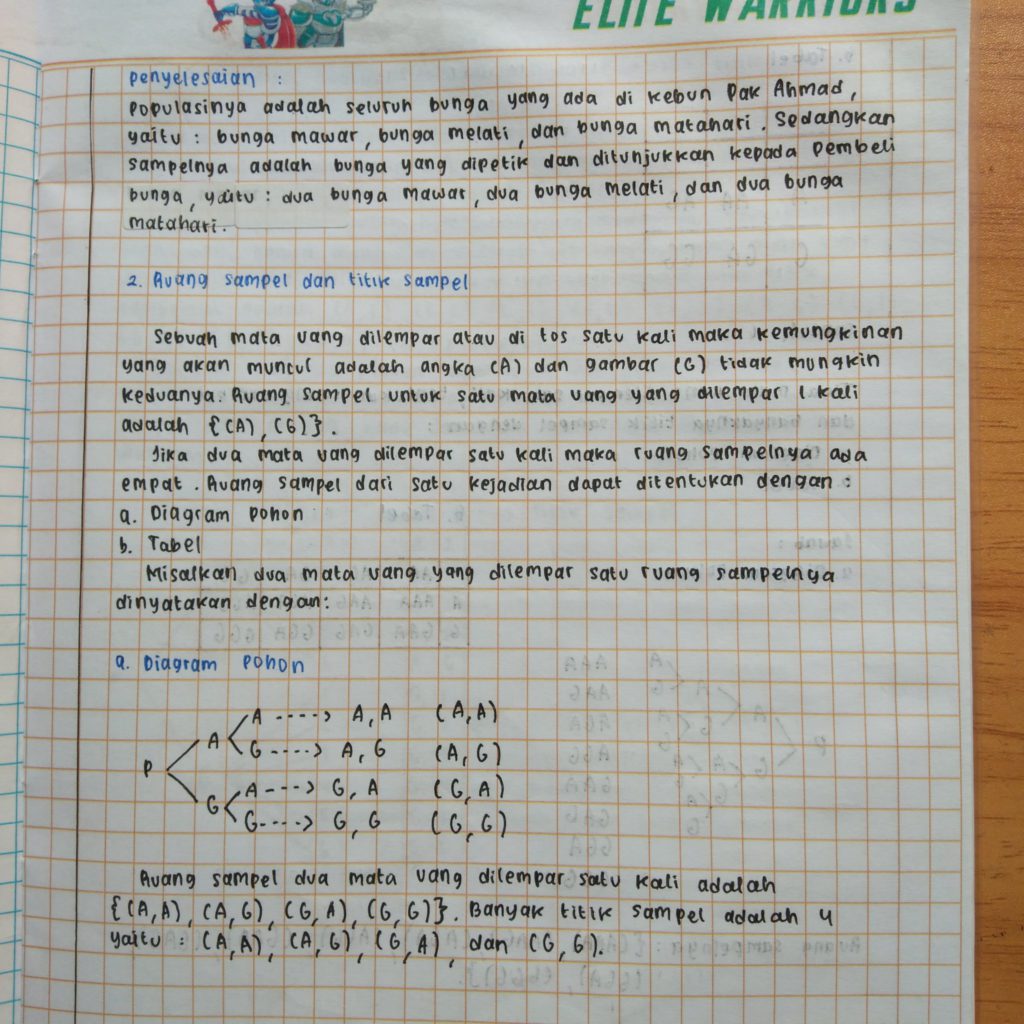 ELITE WARRIORS
penyelesaian :
populasinya adalah seluruh bunga yang ada di kebun Pak Ahmad,
yaitu : bunga mawar, bunga melati, dan bunga matahari. Sedangkan
sampelnya adalah bunga yang dipetik dan ditunjukkan kepada pembeli
bunga, yaitu : dua bunga mawar, dua bunga melati, dan dua bunga
matahari.
2. Ruang sampel dan titik sampel
Sebuah mata uang dilempar atau di tos satu kali maka kemungkinan
yang akan muncul adalah angka (A) dan gambar (G) tidak mungkin
keduanya. Ruang sampel untuk satu mata uang yang dilempar 1 kali
adalah {(A), (G)}.
Jika dua mata uang dilempar satu kali maka ruang sampelnya ada
empat. Ruang sampel dari satu kejadian dapat ditentukan dengan :
a. Diagram pohon
b. Tabel
Misalkan dua mata uang yang dilempar satu ruang sampelnya
dinyatakan dengan:
a. Diagram pohon
A ----> A, A (A, A)
A
G ----> A, G (A, G)
P
A ----> G, A (G, A)
G
G ----> G, G (G, G)
Ruang sampel dua mata uang dilempar satu kali adalah
{(A, A), (A, G), (G, A), (G, G)}. Banyak titik sampel adalah 4
yaitu : (A, A), (A, G), (G, A), dan (G, G).